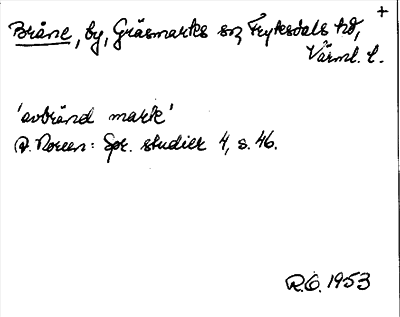 +
Bråne, by, Gräsmarks sn, Fryksdals hd,
Värml. l.
'avbränd mark'
A. Noreen: Spr. studier 4, s. 46.
R.O. 1953